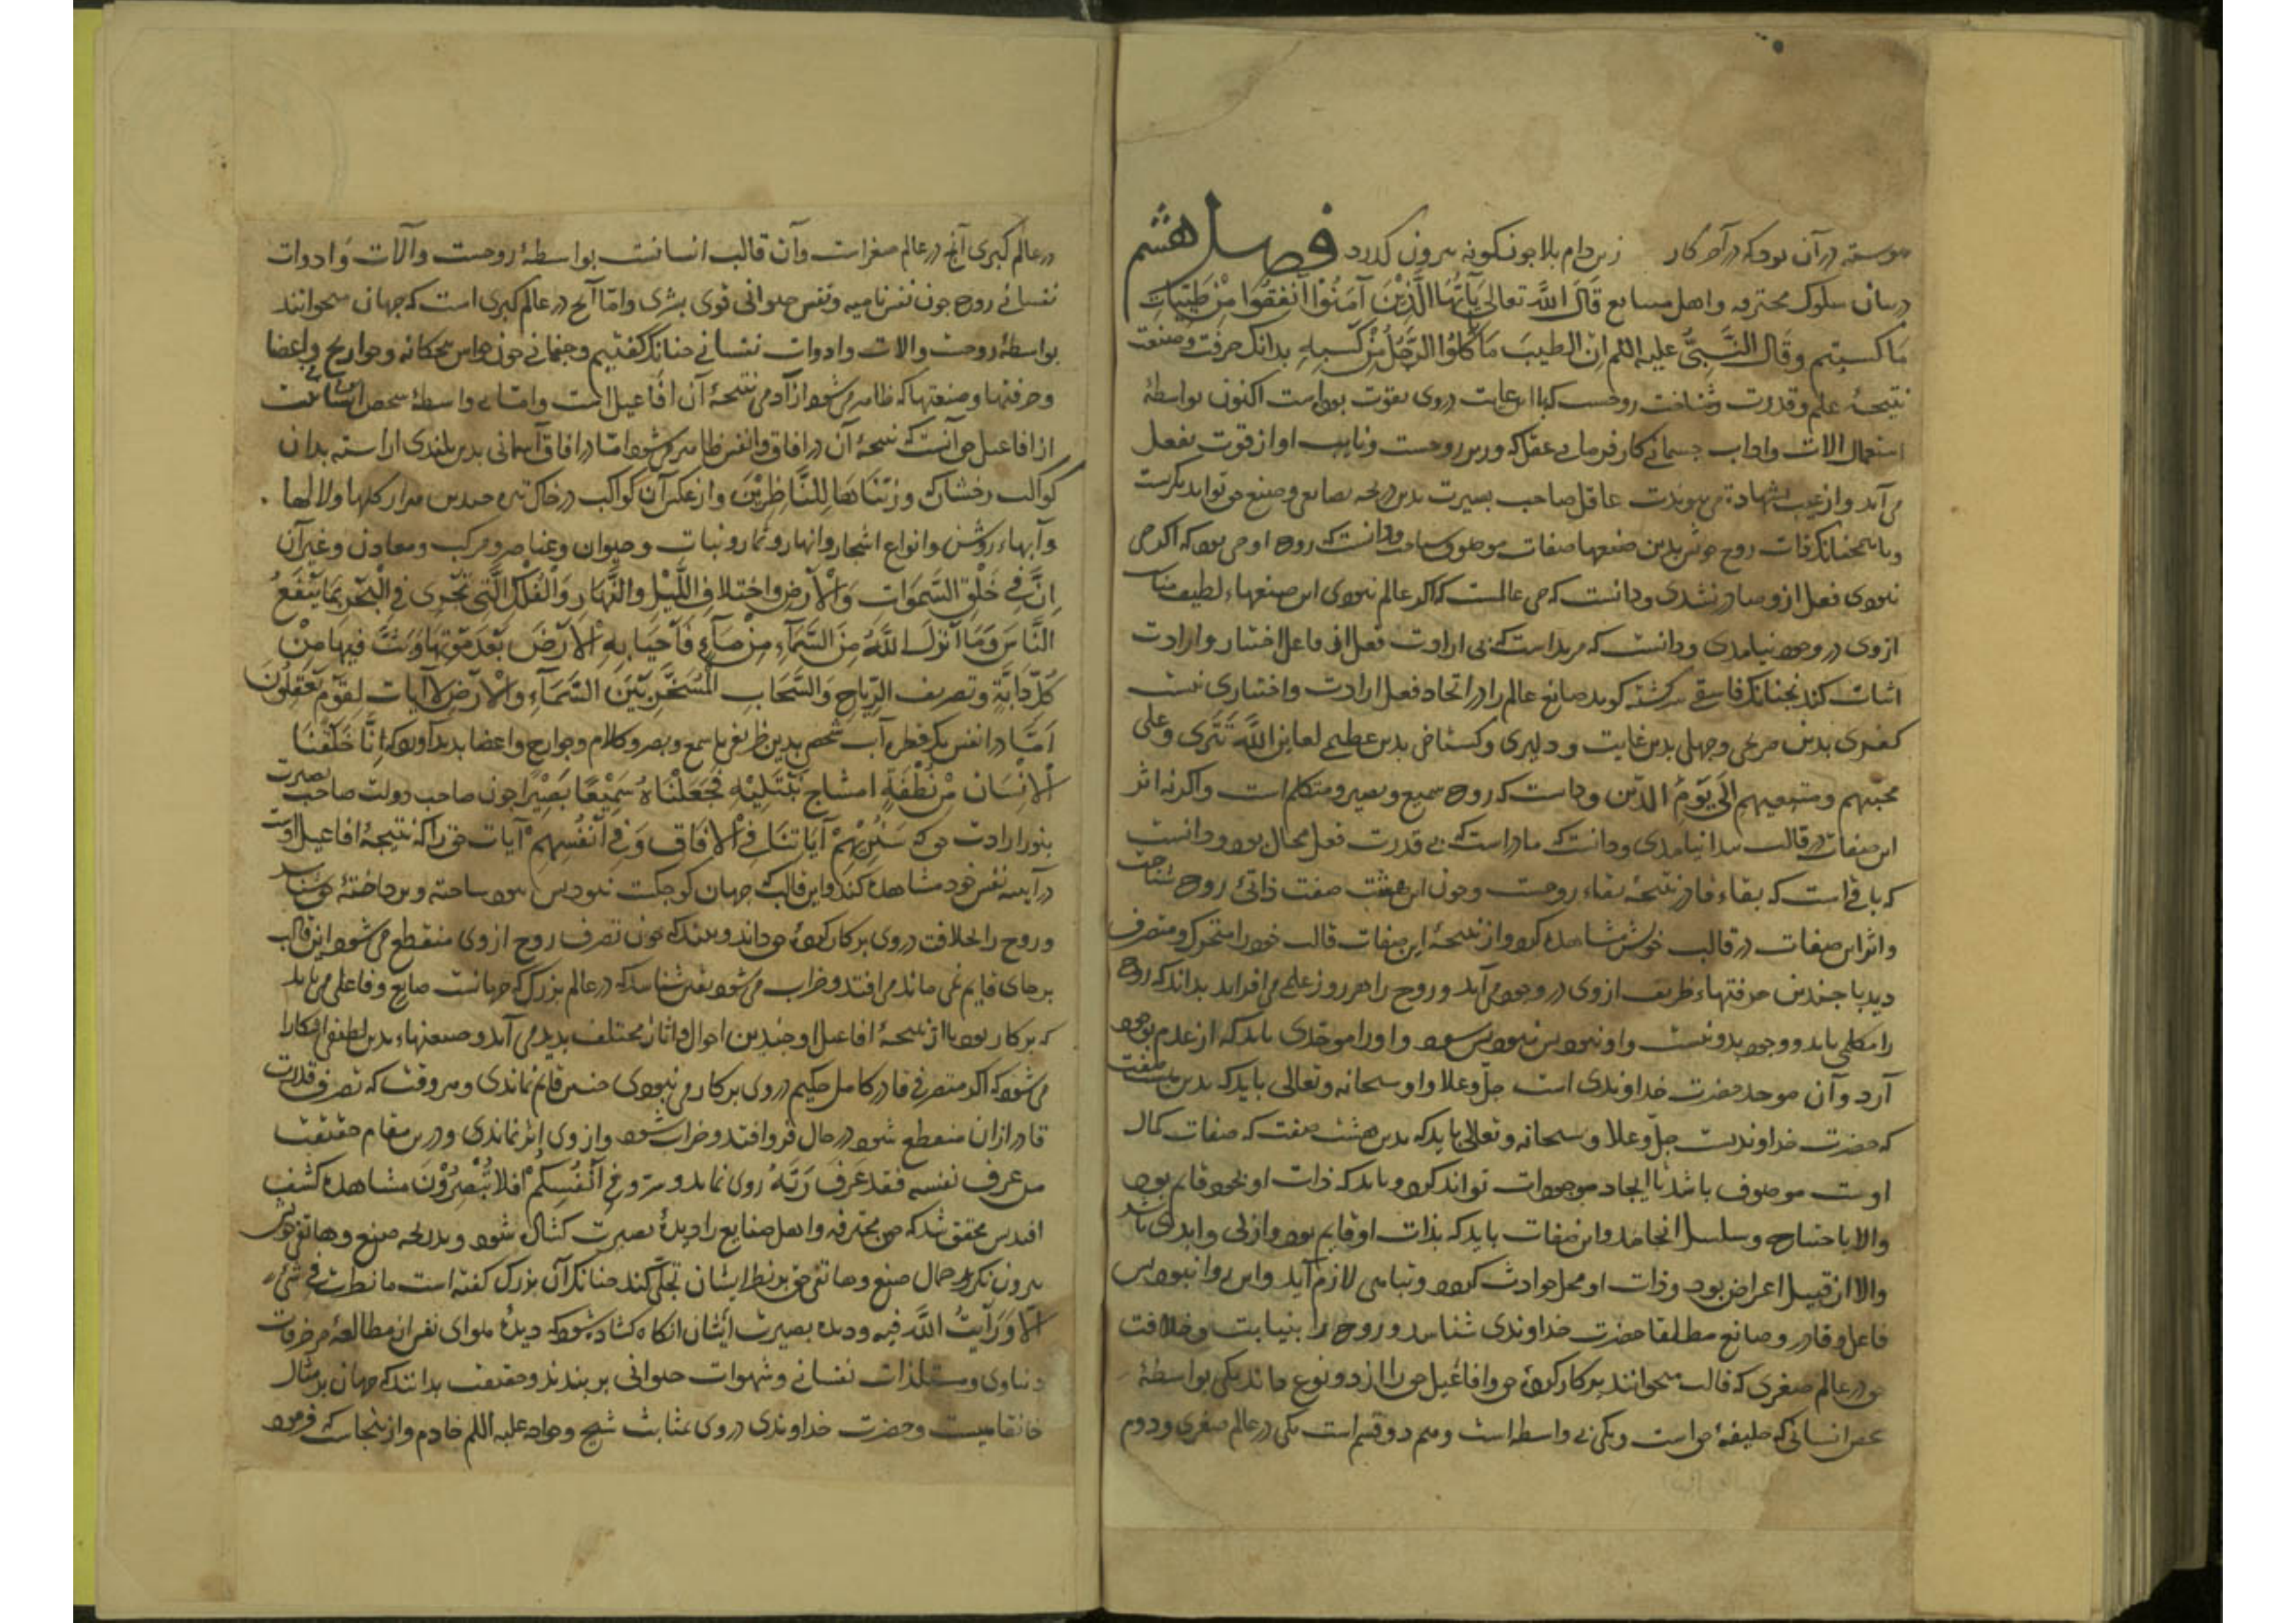 پیوسته در آن بود که در آخر کار زین دام بلا چون گونه بیرون گذرد فصل هشتم
در بیان سلوک محترفه و اهل صنایع قَالَ اللهُ تعالى يَا أَيُّهَا الَّذِيْنَ آمَنُوْا أَنْفِقُوا مِنْ طَيِّبَاتِ
مَا كسبتم وقَالَ النَّبِيُّ عليه السلم ان الطيبَ مَا كلُوا الرَّجُلُ مِنْ كَسْبِهِ بدانک حرفت وصنعت
نتیجهٔ علم و قدرت و شناخت روحست که در وی بقوت بوداست اکنون بواسطهٔ
استعمال آلات وادوات جسمانی کارفرمای عقل که وزیر روحست ونایب او از قوت بفعل
می آید و از غیب بشهادة می پیوندت عاقل صاحب بصیرت بدین دریچه بصانعی وصنع حق تواند نگرست
وبا همچنانک ذات روح خویش بدین صنعها صفات موصوف شناخت ودانست که روح او حی بود که اگر حی
نبودی فعل ازو صادر نشدی ودانست که حی عالمست که اگر عالم نبودی این صنعهاء لطیف متناسب
ازوی در وجود نیامدی ودانست که مریداست که بی ارادت فعل از فاعل اختیار وارادت
اثبات کند نچنانک فلسفی سرگشته گوید صانع عالم را در ایجاد فعل ارادت واختیاری نیست
کفری بدین صریحی وجهلی بدین غایت ودلیری وگستاخی بدین عظیمی لعاین الله تَتَرى وعلى
محبیهم ومتبعیهم إلَى يَوْمِ الدّين ودانست که روح سمیع وبصیر ومتکلم است واگرنه اثر
این صفات در قالب پیدا نیامدی ودانست که قادراست که بی قدرت فعل محال بود ودانست
که باقی است که بقاء قادر نتیجهٔ بقاء روحست وچون این هشت صفت ذاتئ روح شناخت
واثر این صفات در قالب خویش مشاهده کرد واز نتیجهٔ این صفات قالب خود را متحرک ومتصرف
دید با چندین حرفتهاء ظریف ازوی در وجود می آید وروح را هر روز علمی می افزاید بداند که روح
را مکملی باید ووجود بدو نیست واو نبود پس نبود پس ببود واورا موجدی باید که از عدم بوجود
آرد وآن موجد حضرت خداوندی است جلّ وعلا واو سبحانه وتعالی باید که بدین هشت صفت
که حضرت خداوندیست جلّ وعلا و سبحانه وتعالی باید که بدین هشت صفت که صفات کمال
اوست موصوف باشد تا ایجاد موجودات تواند کرد وباید که ذات او بخود قایم بود
والا با حتیاج وسلسل انجامد واین صفات باید که بذات او قایم بود وازلی وابدی باشد
والا از قبیل اعراض بود وذات او محل حوادث گردد وتناهی لازم آید واین روا نبود پس
فاعل وقادر وصانع مطلقا حضرت خداوندی شناسد وروح را بنیابت وخلافت
حق در عالم صغری که قالب میخوانند بر کار کردهٔ حق وافاعیل حق را از دو نوع داند یکی بواسطهٔ
عین انسانی که خلیفهٔ حق است ویکی بی واسطه است وهم دو قسم است یکی در عالم صغری ودوم
در عالم کبری آنچ در عالم صغراست وآن قالب انسانست بواسطهٔ روحست وآلات وَادوات
نفسانئ روح چون نفس نامیه ونفس حیوانی قوی بشری واما آنچ در عالم کبری است که جهان میخوانند
بواسطهٔ روحست والات وادوات نفسانی چنانک گفتیم وجسمانی چون حواس پنجگانه وجوارح واعضا
وحرفتها وصنعتها که ظاهر می شود از آدمی نتیجهٔ آن افاعیل است واما بی واسطهٔ شخص انسانیست
از افاعیل حق آنست که نتیجهٔ آن در افاق وانفس ظاهر می شود امّا در افاق آسمانی بدین بلندی اراسته بدان
کواکب رخشان که وزَیَّنَّاهَا لِلنَّاظِرِیْنَ واز عکس آن کواکب در خاک تیره چندین هزار گلها ولالها .
وآبهاء روشن وانواع اشجار وانهار وثمار ونبات وحیوان وعناصر ومرکب ومعادن وغیر آن
إِنَّ فِي خَلْقِ السَّمَوَات وَالْأَرْضِ واختلافِ اللَّيْلِ والنَّهَارِ وَالْفُلْكِ الَّتِي تَجْرِي فِي الْبَحْرِ بِمَا يَنْفَعُ
النَّاسَ وَمَا أَنْزَلَ اللهُ مِنَ السَّمَآءِ مِنْ مَآءٍ فَأَحْيَا بِهِ الْأَرْضَ بَعْدَ مَوْتِهَا وَبَثَّ فِيهَا مِنْ
كُلِّ دَابَّةٍ وتصريف الرِّيَاحِ وَالسَّحَابِ الْمُسَخَّرِ بَيْنَ السَّمَآءِ والْأَرْضِ لآيات لقَوْمٍ يَعْقِلُونَ
اَمَّا در انفس یک قطره آب شخصی بدین ظریفی با سمع وبصر وکلام وجوارح واعضا پدید آورد که إِنَّا خَلَقْنَا
الْإِنْسَانَ مِنْ نُطْفَةٍ امشاج نَبْتَلِيْهِ فَجَعَلْنَاهُ سَمِيْعًا بَصِيْرًا چون صاحب دولت صاحب بصیرت
بنور ارادت حق که سَنُرِيْهِمْ آيَاتِنَا فِي الْآفَاقِ وَفِي أَنْفُسِهِمْ آیات حق را که نتیجهٔ افاعیل اوست
در آینه نفس خود مشاهده کند واین قالب جهان کوچکست نبود پس ببود ساخته وپرداختهٔ حق شناسد
وروح را بخلافت در وی بر کار کردهٔ حق داند وبیند که چون تصرف روح از وی منقطع می شود این قالب
بر جای قایم نمی ماند می افتد وخراب می شود یقین شناسد که در عالم بزرگ که جهانست صانع وفاعلی می باید
که بر کار بود تا از نتیجهٔ افاعیل او چندین احوال واثار مختلف پدید می آید وصنعتهاء بدین لطیفی اشکارا
می شود که اگر متصرفی قادر کامل حکیم در وی بر کار می نبودی چنین قایم نماندی وهر وقت که تصرف قدرت
قادر ازان منقطع شود در حال فرو افتد وخراب شود واز وی اثر نماندی ودرین مقام حقیقت
من عرف نفسه فقد عَرَفَ رَبَّهُ روی نماید وسرّ وَفِي أَنْفُسِكُمْ أَفلا تُبْصِرُوْنَ مشاهده کشف
افتد پس محقق شد که چون محترفه واهل صنایع را دیدهٔ بصیرت گشاده شود وبدریچه صنع
بیرون نگرند جمال صنع وصانعی حق بر نظر ایشان تجلّی کند چنانک آن بزرگ گفته است ما نظرت فِي شَيْء
الّا وَرَأَيْتُ اللهَ فيه ودیده بصیرت ایشان انگاه گشاده شود که دیدهٔ هوای نفس از مطالعهٔ مزخرفات
دنیاوی ومستلذات نفسانی وشهوات حیوانی بر بندند وحقیقت بدانند که جهان بر مثال
خانقاهیست وحضرت خداوندی در وی بمثابت شیخ وخواجه علیه السلم خادم وازینجاست که فرمود